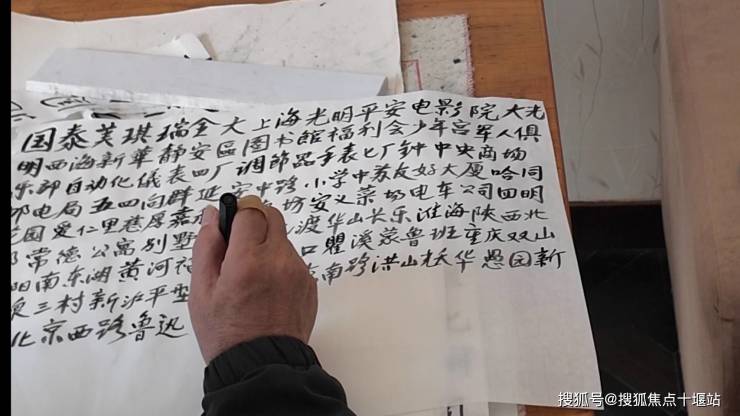 国泰芙琪瑞金大上海光明平安电影院大光
明西海新華静安區图书館福利会少年宫军人俱
乐部自动化儀表四厂调節器手表七厂钟中央商场
邮电局五四向群延安中路小学中苏友好大厦哈同
花园爱仁里慈厚嘉 坊安义菜场电车公司四明
常德公寓别墅 渡华山长乐淮海陕西北
阳南东湖黄河 口瞿溪蒙鲁班重庆双山
三村新沪平型 东南路洪山 华愚园新
北京西路鲁迅
搜狐号@搜狐焦点十堰站